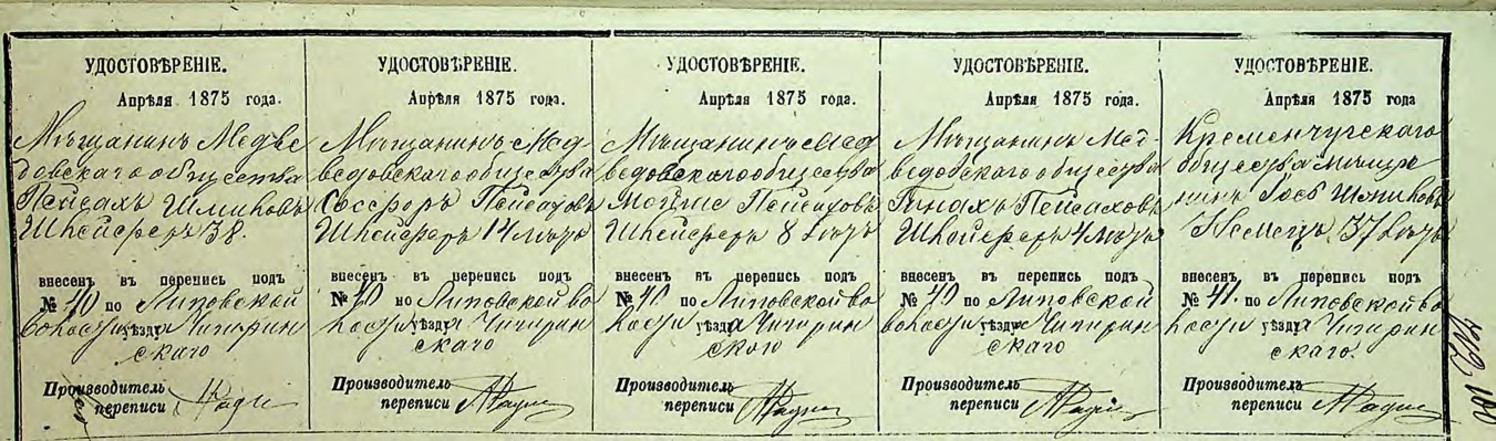 УДОСТОВѢРЕНІЕ.
Апрѣля 1875 года.
Мѣщанинъ Медве
довскаго общества
Пейсахъ Шминовъ
Шнейферъ 38.
внесенъ въ перепись подъ
№ 40 по Липовской
волости уѣзда Чигирин
скаго
Производитель
переписи
УДОСТОВѢРЕНІЕ.
Апрѣля 1875 года.
Мѣщанинъ Мед
ведовскаго общества
Пейсаховъ
Шнейферъ 14 лѣтъ
внесенъ въ перепись подъ
№ 40 по Липовской во
лости уѣзда Чигирин
скаго
Производитель
переписи
УДОСТОВѢРЕНІЕ.
Апрѣля 1875 года.
Мѣщанинъ Мед
ведовскаго общества
Мойше Пейсаховъ
Шнейферъ 8 лѣтъ
внесенъ въ перепись подъ
№ 40 по Липовской во
лости уѣзда Чигирин
скаго
Производитель
переписи
УДОСТОВѢРЕНІЕ.
Апрѣля 1875 года.
Мѣщанинъ Мед-
ведовскаго общества
Пейсаховъ
Шнейферъ 4 лѣтъ
внесенъ въ перепись подъ
№ 40 по Липовской
волости уѣзда Чигирин
скаго
Производитель
переписи
УДОСТОВѢРЕНІЕ.
Апрѣля 1875 года
Кременчугскаго
общества мѣща
нинъ
Немецъ 37 лѣтъ
внесенъ въ перепись подъ
№ 41. по Липовской во
лости уѣзда Чигирин
скаго.
Производитель
переписи